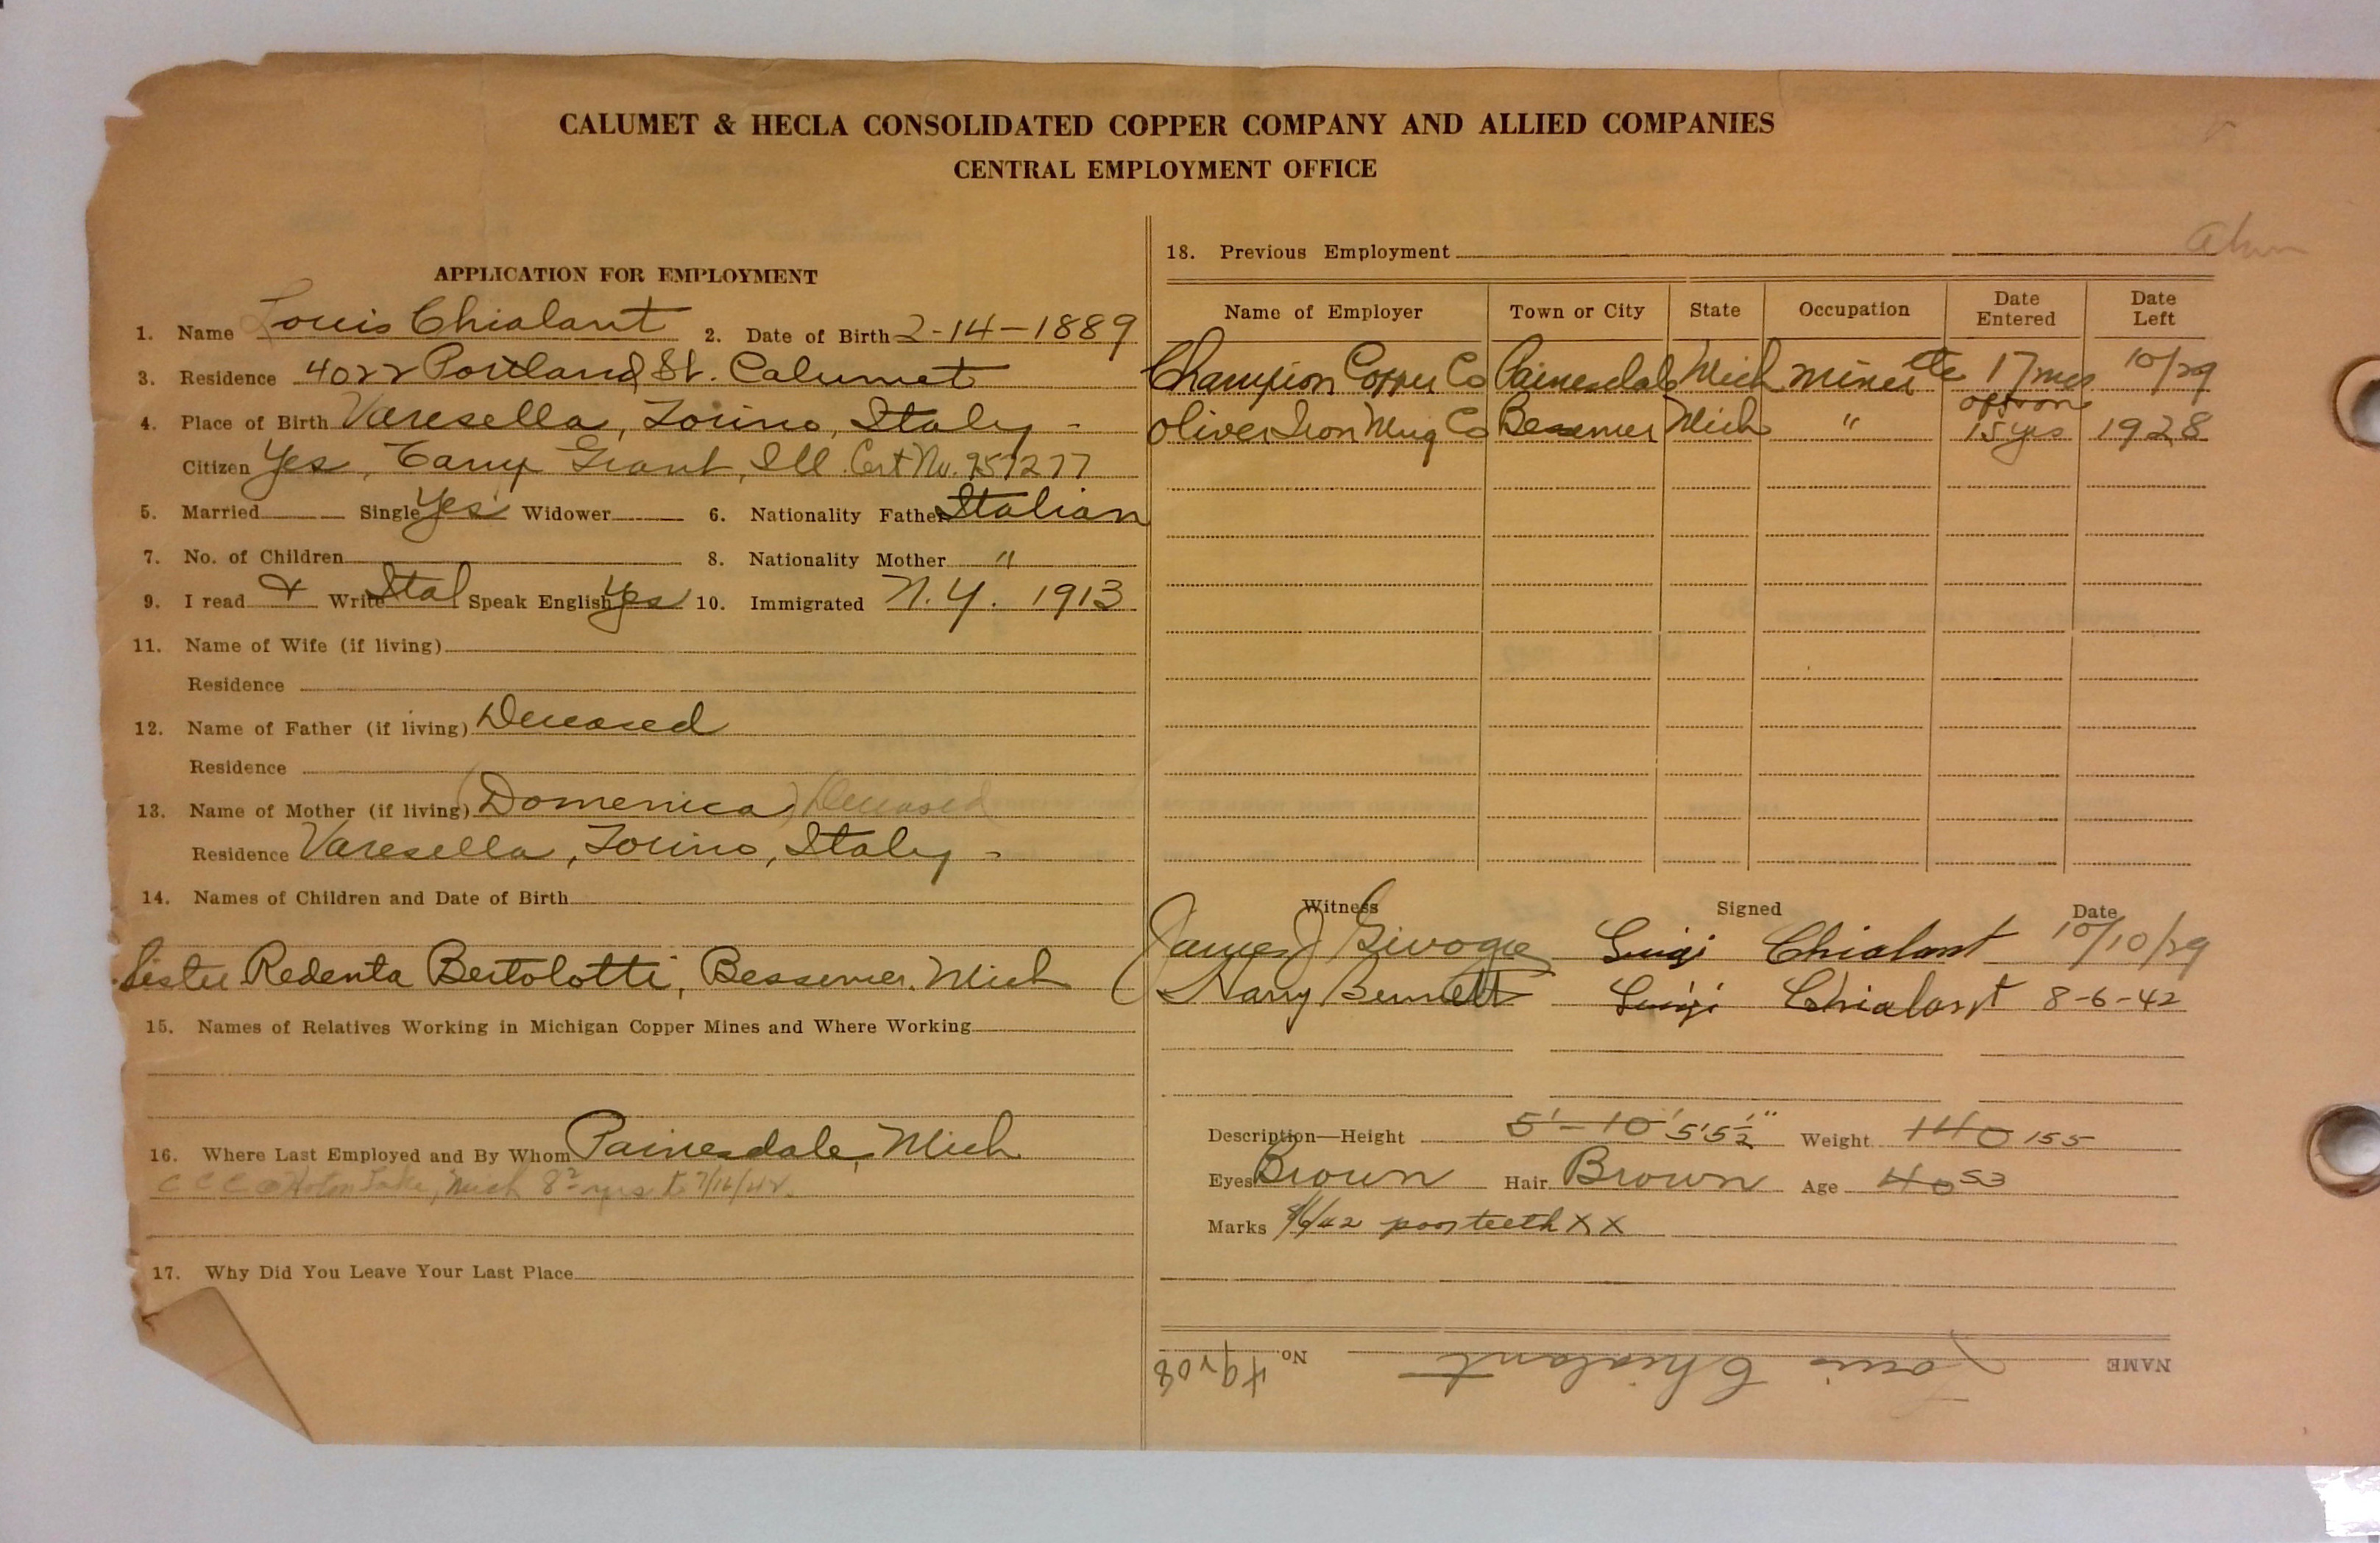 CALUMET & HECLA CONSOLIDATED COPPER COMPANY AND ALLIED COMPANIES
CENTRAL EMPLOYMENT OFFICE
APPLICATION FOR EMPLOYMENT
1. Name Louis Chialant 2. Date of Birth 2-14-1889
3. Residence 4022 Portland St. Calumet
4. Place of Birth Varesella, Torino, Italy -
Citizen Yes, Camp Grant, Ill. Cert No. 957277
5. Married Single Yes Widower 6. Nationality Father Italian
7. No. of Children 8. Nationality Mother "
9. I read & Write Ital Speak English Yes 10. Immigrated N.Y. 1913
11. Name of Wife (if living)
Residence
12. Name of Father (if living) Deceased
Residence
13. Name of Mother (if living) (Domenica) Deceased
Residence Varesella, Torino, Italy -
14. Names of Children and Date of Birth
Sister Redenta Bertolotti, Bessemer, Mich
15. Names of Relatives Working in Michigan Copper Mines and Where Working
16. Where Last Employed and By Whom Painesdale, Mich
C C C Lake, Mich 8 yrs to 7/16/42.
17. Why Did You Leave Your Last Place
18. Previous Employment
Name of Employer Town or City State Occupation Date Entered Date Left
Champion Copper Co Painesdale Mich miner etc 17 mos 10/29
Oliver Iron Mng Co Bessemer Mich " off & on 15 yrs 1928
Witness Signed Date
James J Givogre Luigi Chialant 10/10/29
Harry Bennett Luigi Chialant 8-6-42
Description—Height 5'-10" 5'5½" Weight 140 155
Eyes Brown Hair Brown Age 40 53
Marks 8/6/42 poor teeth X X
NAME Louis Chialant No. 49208